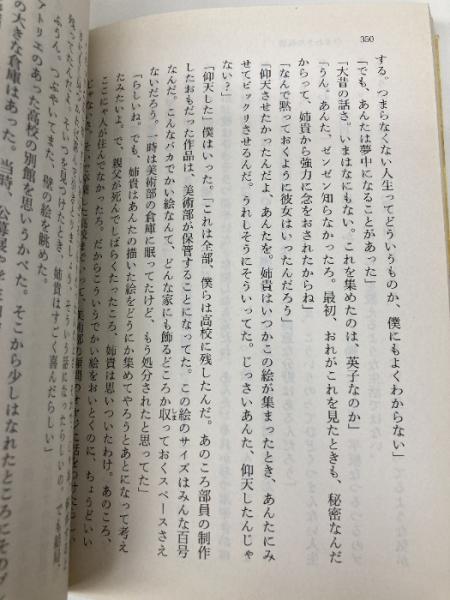 350
する。つまらなくない人生ってどういうものか、僕にもよくわからない」
「でも、あんたは夢中になることがあった」
「大昔の話さ。いまはなにもない。これを集めたのは、英子なのか」
「うん。あんた、ゼンゼン知らなかったろ。最初、おれがこれを見たときも、秘密なんだ
からって、姉貴から強力に念をおされたからね」
「なんで黙っておくように彼女はいったんだろう」
「仰天させたかったんだよ、あんたを。姉貴はいつかこの絵が集まったとき、あんたにみ
せてビックリさせるんだ。うれしそうにそういってた。じっさいあんた、仰天したんじゃ
ない？」
「仰天した」僕はいった。「これは全部、僕らは高校に残したんだ。あのころ部員の制作
したおもだった作品は、美術部が保管することになってた。この絵のサイズはみんな百号
なんだ。こんなバカでかい絵なんて、どんな家にも飾るどころか収っておくスペースさえ
ないだろう。一時は美術部の倉庫に眠ってたけど、もう処分されたと思ってた」
「らしいね。でも、姉貴はあんたの描いた絵をどうにか集めてやろうとあとになって考え
たみたいよ。で、親父が死んでしばらくたったころ、姉貴は思いついたわけ。あのころ、
ここにゃ人が住んでなかったろ。だからこういうでかい絵をおいとくのに、ちょうどいい
ふうん。つぶやいてまた、壁の絵を眺めた。
アトリエのあった高校の別館を思いうかべた。そこから少しはなれたところに
の大きな倉庫はあった。当時、公募展や